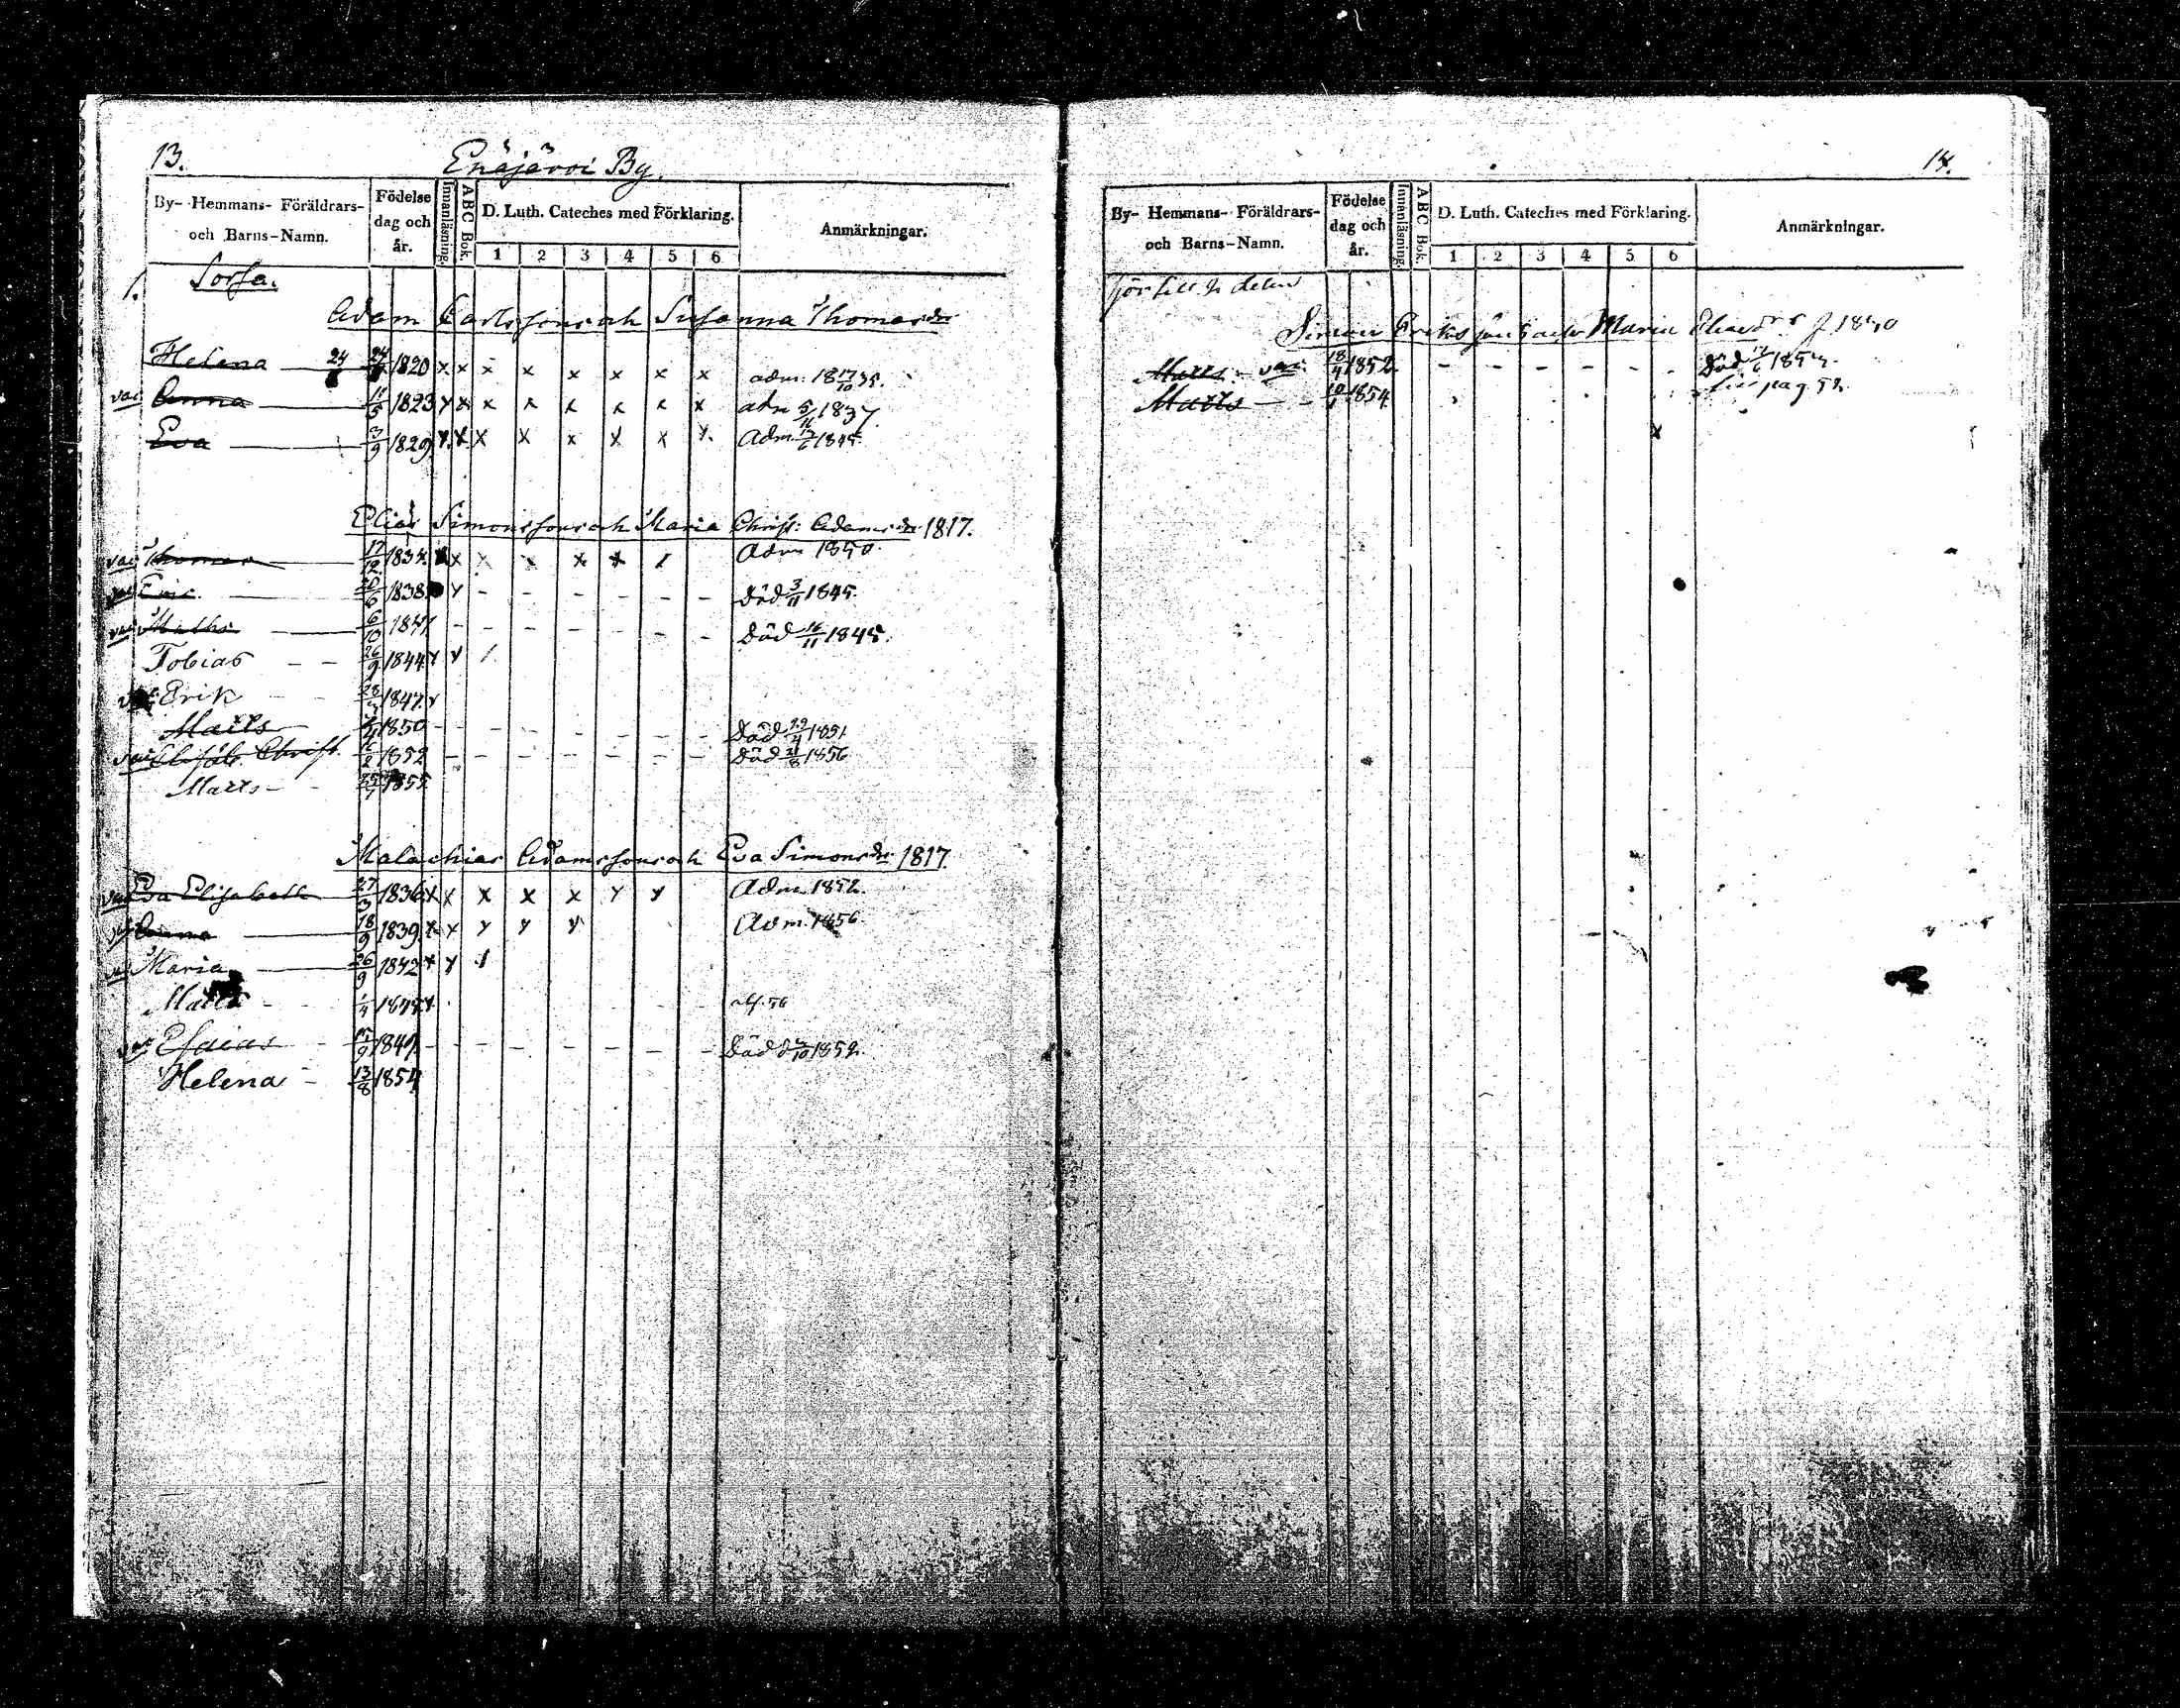 13.
Enäjärvi By.
By- Hemmans- Föräldrars- och Barns-Namn.
Födelse dag och år.
Innanläsning.
ABC Bok.
D. Luth. Cateches med Förklaring.
1 2 3 4 5 6
Anmärkningar.
1. Sorsa.
Adam Carlsson och Susanna Thomasdr
Helena 24 1820 x x x x x x x x adm: 1817/10 35.
vac Anna 11/5 1823 x x x x x x x x adm 5/11 1837
Eva 3/9 1829 x x x x x x x x Adm. 1845
Elias Simonsson och Maria Christ: Adamsdr 1817.
vac Thomas 17/12 1834 x x x x x x Adm 1850.
vac Eric 1838 x - - - - - - Död 3/11 1845.
vac Maths 6/10 1841 - - - - - - - Död 16/11 1845.
Tobias - - 26/9 1844 x x /
Erik 1847 x
Matts 1850 - - - - - - Död 29/4 1851
vac Elisab. Christ. 1852 - - - - - - Död 21/8 1856
Matts - - 1855
Malachias Adamsson och Eva Simonsdr 1817.
vac Eva Elisabeth 27/3 1836 x x x x x x x Adm. 1852.
Anna 18/9 1839 x x x x x Adm. 1856
Maria 26/9 1842 x x /
Matts - 1/4 1845 x
vac Esaias - 1849 - - - - - - - Död 1852.
Helena - 13/8 1854
14.
By- Hemmans- Föräldrars- och Barns-Namn.
Födelse dag och år.
Innanläsning.
ABC Bok.
D. Luth. Cateches med Förklaring.
1 2 3 4 5 6
Anmärkningar.
Simon Eriksson och Maria Eliaedr f 1830
Matts - vac. 18/4 1852 - - - - - - Död
Matts - - 10/1 1854 pag 52.
x